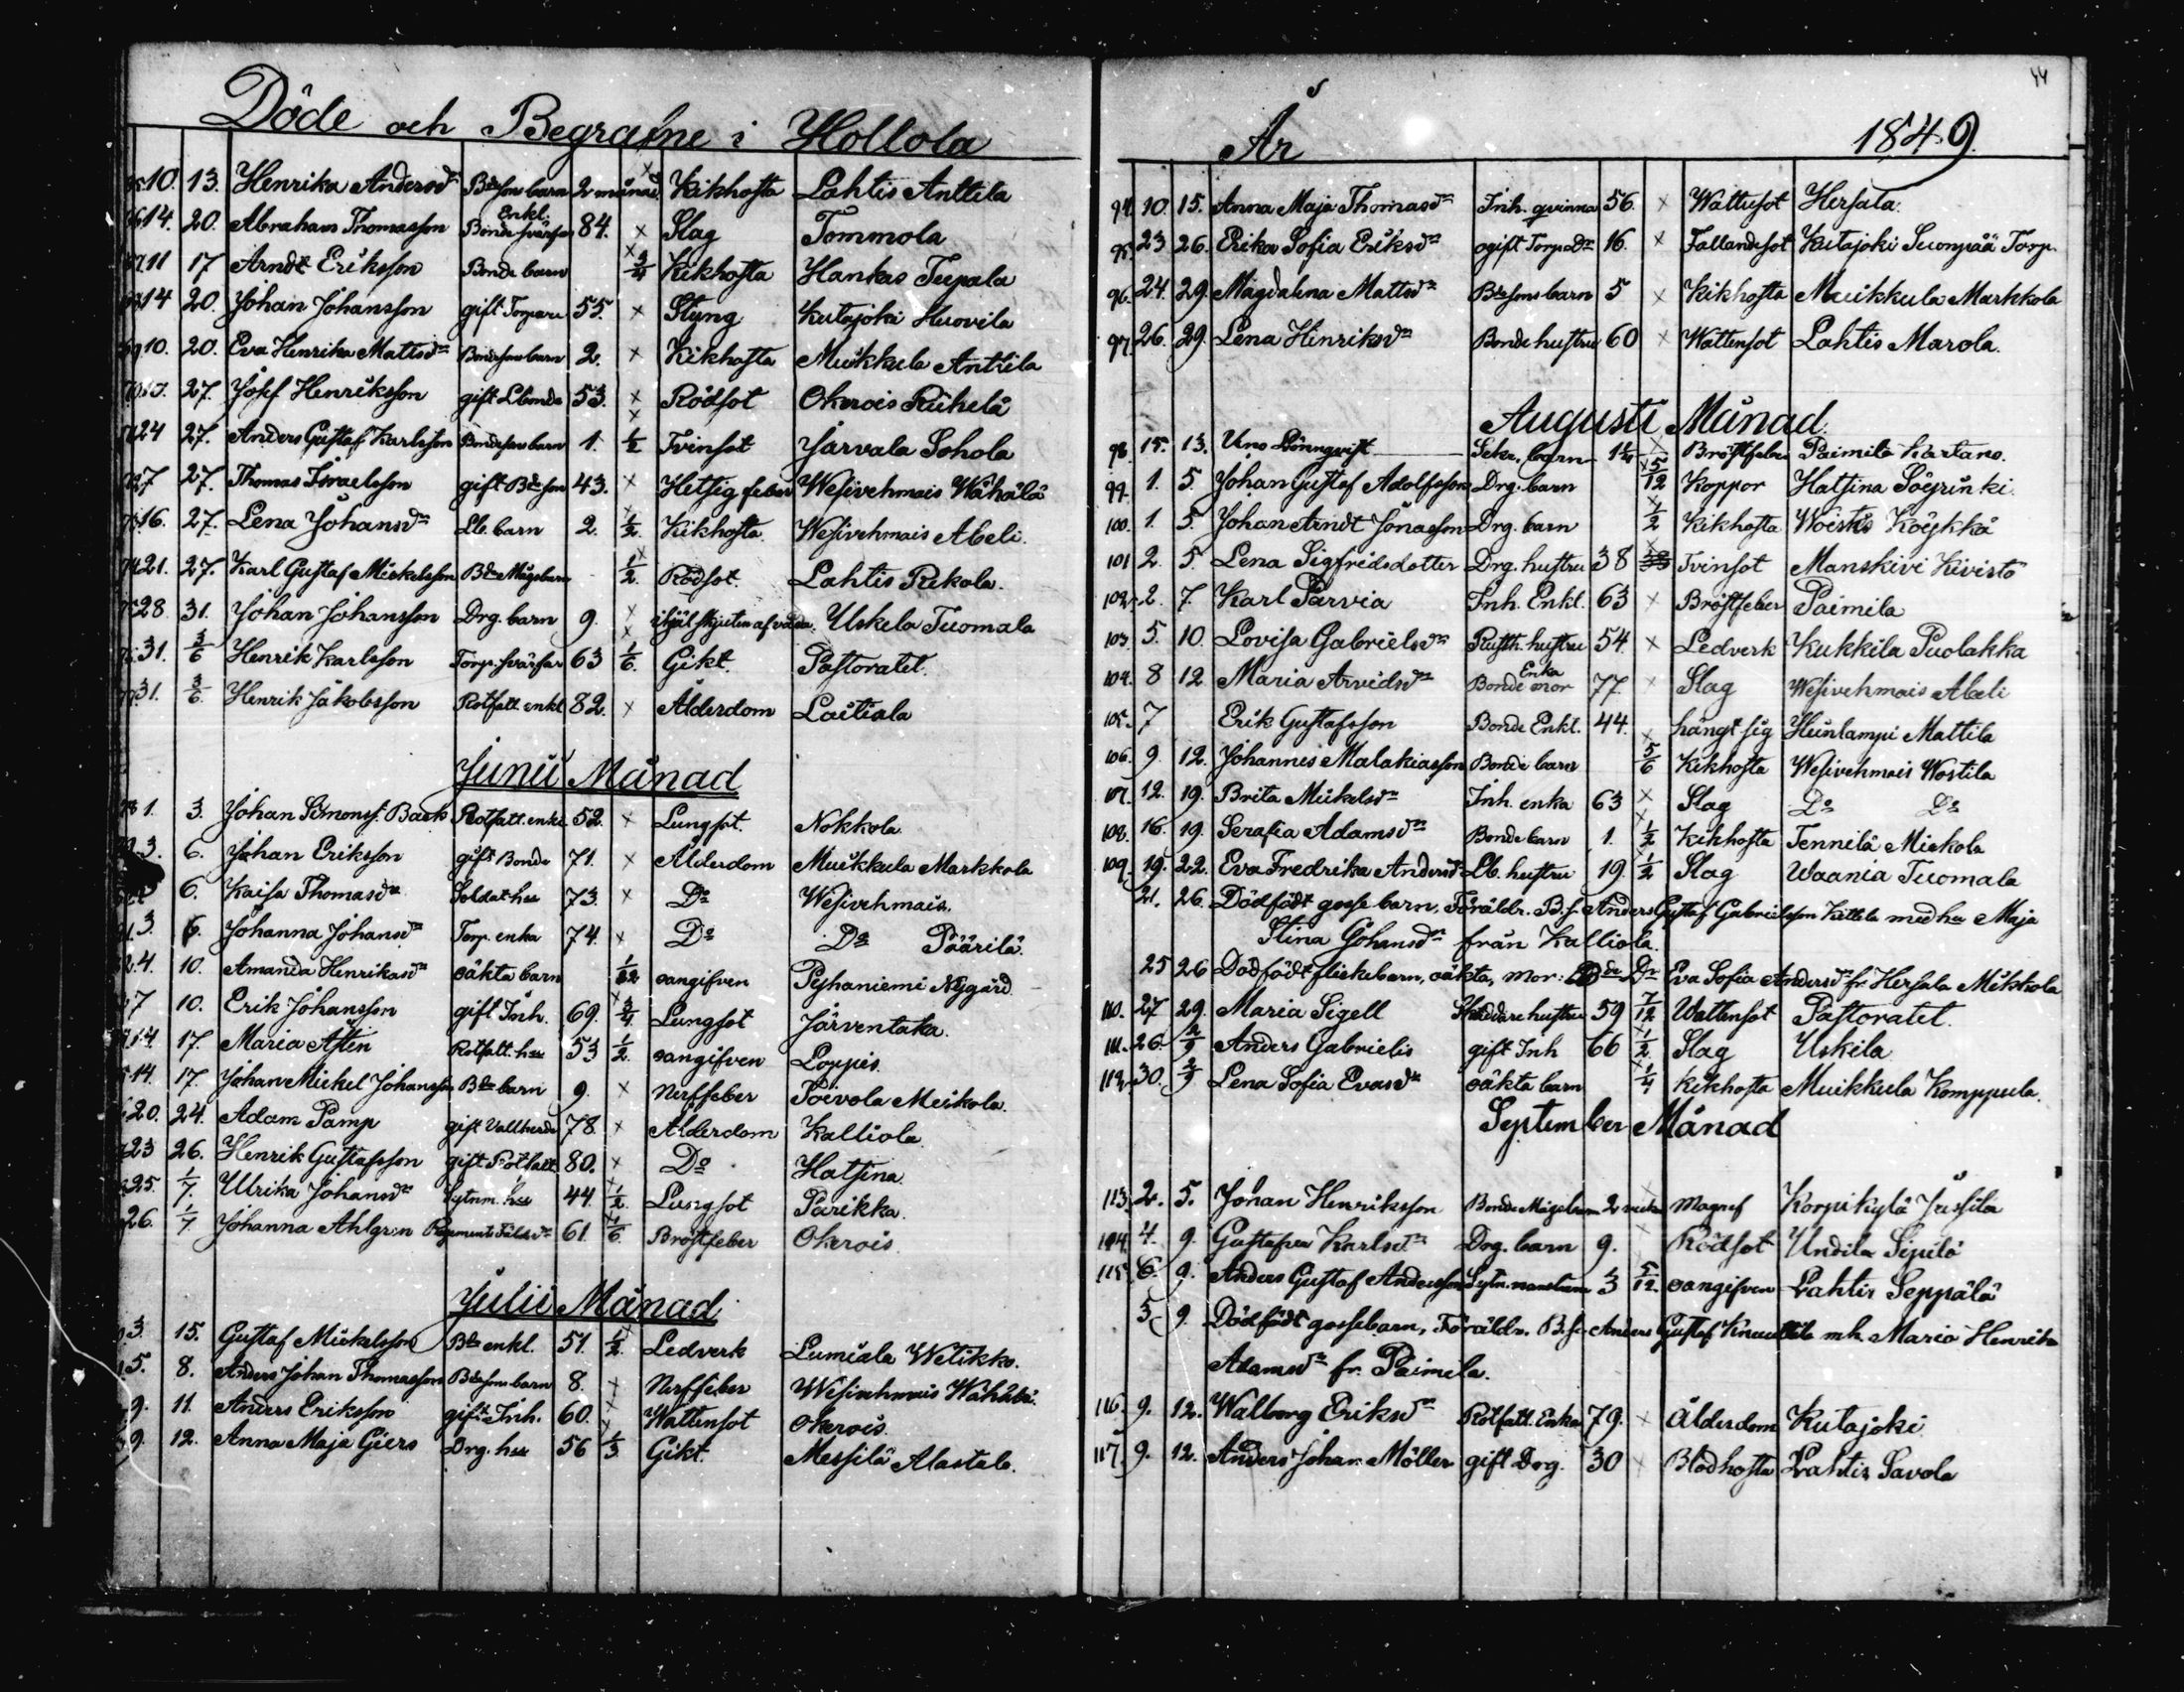 Döde och Begrafne i Hollola
10. 13. Henrika Andersdr Bdesons barn 2 månad. × Kikhosta Lahtis Anttila
14. 20. Abraham Thomasson Bonde svärfar Enkl. 84. × Slag Tommola
11 17 Arndt Eriksson Bonde barn × 3/4 Kikhosta Hankas Teepala
14 20. Johan Johansson gift Torpare 55. × Styng Kutajoki Huovila
10. 20. Eva Henrika Mattsdr Bondesons barn 2. × Kikhosta Mukkula Anttila
27. Josef Henriksson gift Lbonde 53. × Rödsot Okerois Riihelä
24 27. Anders Gustaf Karlsson Bondesons barn 1. × 1/2 Tvinsot Jarvala Sohola
27. Thomas Israelsson gift Bdeson 43. × Hetsig feber Wesivehmais Wähälä
16. 27. Lena Johansdr Lb. barn 2. × 1/2. Kikhosta Wesivehmais Abeli.
21. 27. Karl Gustaf Mickelsson Bde Mågsbarn × 1/2. Rödsot Lahtis Rekola.
28. 31. Johan Johansson Drg. barn 9. × ihjälskjuten af våda. Uskela Tuomala
31. 3/6 Henrik Karlsson Torp. svärfar 63 × 1/6. Gikt Pastoratet.
31. 3/6. Henrik Jakobsson Rotfatt. enkl 82. × Ålderdom Laitiala
Junii Månad
1. 3. Johan Simonss. Back Rotfatt. enkl 52. × Lungsot. Nokkola
3. 6. Johan Eriksson gift Bonde 71. × Ålderdom Muikkula Markkola
6. Kaisa Thomasdr Soldat hu 73. × Do Wesivehmais.
3. 6. Johanna Johansdr Torp. enka 74. × Do Do Päärilä.
4. 10. Amanda Henrikasdr oäkta barn 1/12 oangifven Pyhäniemi Nygård
7 10. Erik Johansson gift Inh. 69. × 3/4. Lungsot Järventaka.
14. 17. Maria Astin Rotfatt. hu 53 1/2. oangifven Loppis.
14. 17. Johan Mickel Johansson Bde barn 9. × Nerffeber Toivola Meikola.
20. 24. Adam Pamp gift Vallherde 78. × Ålderdom Kalliola
23 26. Henrik Gustafsson gift Rotfatt 80. × Do Hatsina.
25. 1/7. Ulrika Johansdr Sytnm. hu 44. × 1/2. Lungsot Parikka.
26. 1/7 Johanna Ahlgren Regements Fältsdr 61. × 1/6. Bröstfeber Okerois.
Julii Månad
3. 15. Gustaf Mickelsson Bde enkl. 51. × 1/2. Ledverk Lumiala Wetikko.
5. 8. Anders Johan Thomasson Bdesons barn 8. × Nerffeber Wesivehmais Wähälä.
9. 11. Anders Eriksson gift Inh. 60. × Wattensot Okerois.
9. 12. Anna Maja Giers Drg. hu 56 × 1/3 Gikt. Messilä Alastalo.
År 1849.
44
94. 10. 15. Anna Maja Thomasdr Inh. qvinna 56. × Wattusot Hersala.
95. 23 26. Erika Sofia Eriksdr ogift Torp dr 16. × Fallandesot Kutajoki Suonpää Torp.
96. 24. 29. Magdalena Mattsdr Bdesons barn 5 × Kikhosta Muikkula Markkola
97. 26. 29. Lena Hinriksdr Bonde hustru 60 × Wattensot Lahtis Marola.
Augusti Månad.
98. 15. 13. Uno Lönnqvist Sekr. barn 1 1/4 × Bröstfeber Paimila Kartano.
99. 1. 5. Johan Gustaf Adolfsson Drg. barn × 5/12 Koppor Hatsina Söyrinki.
100. 1. 5. Johan Arndt Jonasson Drg. barn × 1/2 Kikhosta Woistis Köykkä
101 2. 5. Lena Sigfridsdotter Drg. hustru 38 × Tvinsot Manskivi Kivistö
102. 2. 7. Karl Parvia Inh. Enkl. 63 × Bröstfeber Paimila
103. 5. 10. Lovisa Gabrielsdr Rusth. hustru 54. × Ledverk Kukkila Puolakka
104. 8 12. Maria Arvidsdr Bonde mor Enka 77. × Slag Wesivehmais Abeli
105. 7 Erik Gustafsson Bonde Enkl. 44. hängt sig Hiinlampi Mattila
106. 9. 12. Johannes Malakiasson Bonde barn × 5/6 Kikhosta Wesivehmais Wostila
107. 12. 19. Brita Mickelsdr Inh. enka 63 × Slag Do Do
108. 16. 19. Serafia Adamsdr Bonde barn 1. × 1/2 Kikhosta Tennilä Mickola
109. 19. 22. Eva Fredrika Andersdr Lb. hustru 19. × 1/2 Slag Waania Tuomala
21. 26. Dödfödt gosse barn, Föräldr. B.s. Anders Gustaf Gabrielsson Kettela med hu Maja
Stina Johansdr från Kalliola.
25 26 Dödfödt flickebarn, oäkta, mor: Bde Dr Eva Sofia Andersdr fr. Hersala Mikkola
110. 27 29. Maria Sigell Skräddare hustru 59 7/12 Wattensot Pastoratet.
111. 26. 2/9 Anders Gabrielis gift Inh 66 × 1/2 Slag Uskila
112. 30. 2/9 Lena Sofia Evasdr oäkta barn × 1/4 Kikhosta Muikkula Komppula.
September Månad
113. 2. 5. Johan Henriksson Bonde Mågsbarn 2 veckor × Magref Korpikylä Jussila
114. 4. 9. Gustafva Karlsdr Drg. barn 9. × Rödsot Undila Sipilä
115. 6. 9. Anders Gustaf Andersson 3 5/12. oangifven Lahtis Seppälä
3. 9. Dödfödt gossebarn, Föräldr. B.s. Anders Gustaf Knuuttila m.h. Maria Henrika
Adamsdr fr. Paimela.
116. 9. 12. Walborg Eriksdr Rotfatt. Enka 79. × Ålderdom Kutajoki
117. 9. 12. Anders Johan Möller gift Drg. 30 × Blodhosta Lahtis Savola